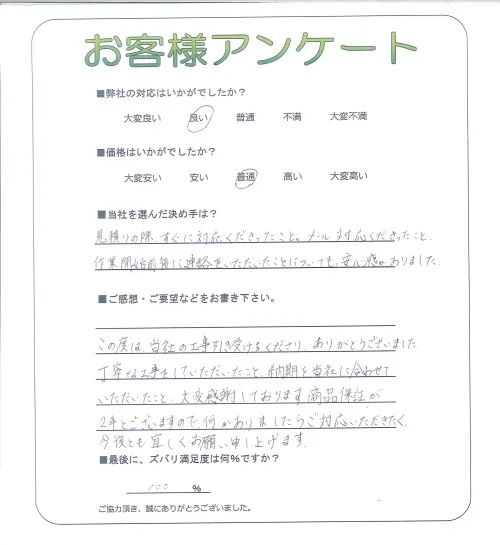 お客様アンケート
■弊社の対応はいかがでしたか？
大変良い 良い 普通 不満 大変不満
■価格はいかがでしたか？
大変安い 安い 普通 高い 大変高い
■当社を選んだ決め手は？
見積りの際、すぐに対応くださったこと。メール対応くださったこと、
作業開始前後に連絡をいただいたことについても、安心感がありました。
■ご感想・ご要望などをお書き下さい。
この度は、当社の工事引き受けをくださり、ありがとうございました。
丁寧な工事をしていただいたこと、納期を当社に合わせて
いただいたこと、大変感謝しております。商品保証が
2年とございますので、何かありましたらご対応いただきたく、
今後とも宜しくお願い申し上げます。
■最後に、ズバリ満足度は何%ですか？
100 %
ご協力頂き、誠にありがとうございました。